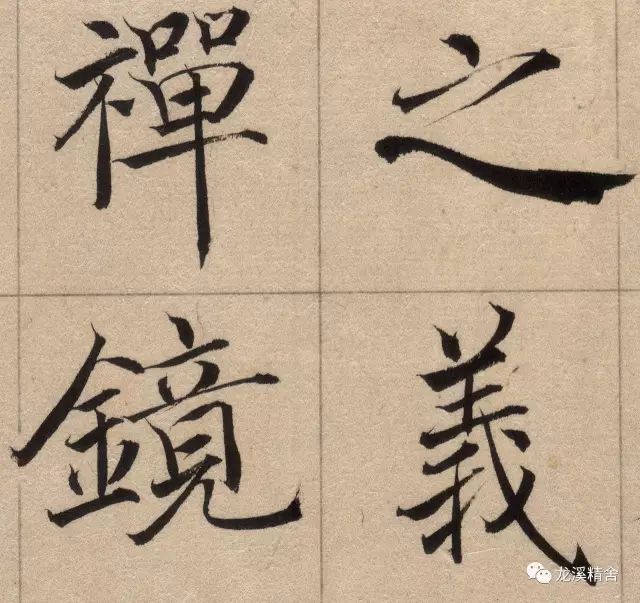 之義
禪鏡
龙溪精舍